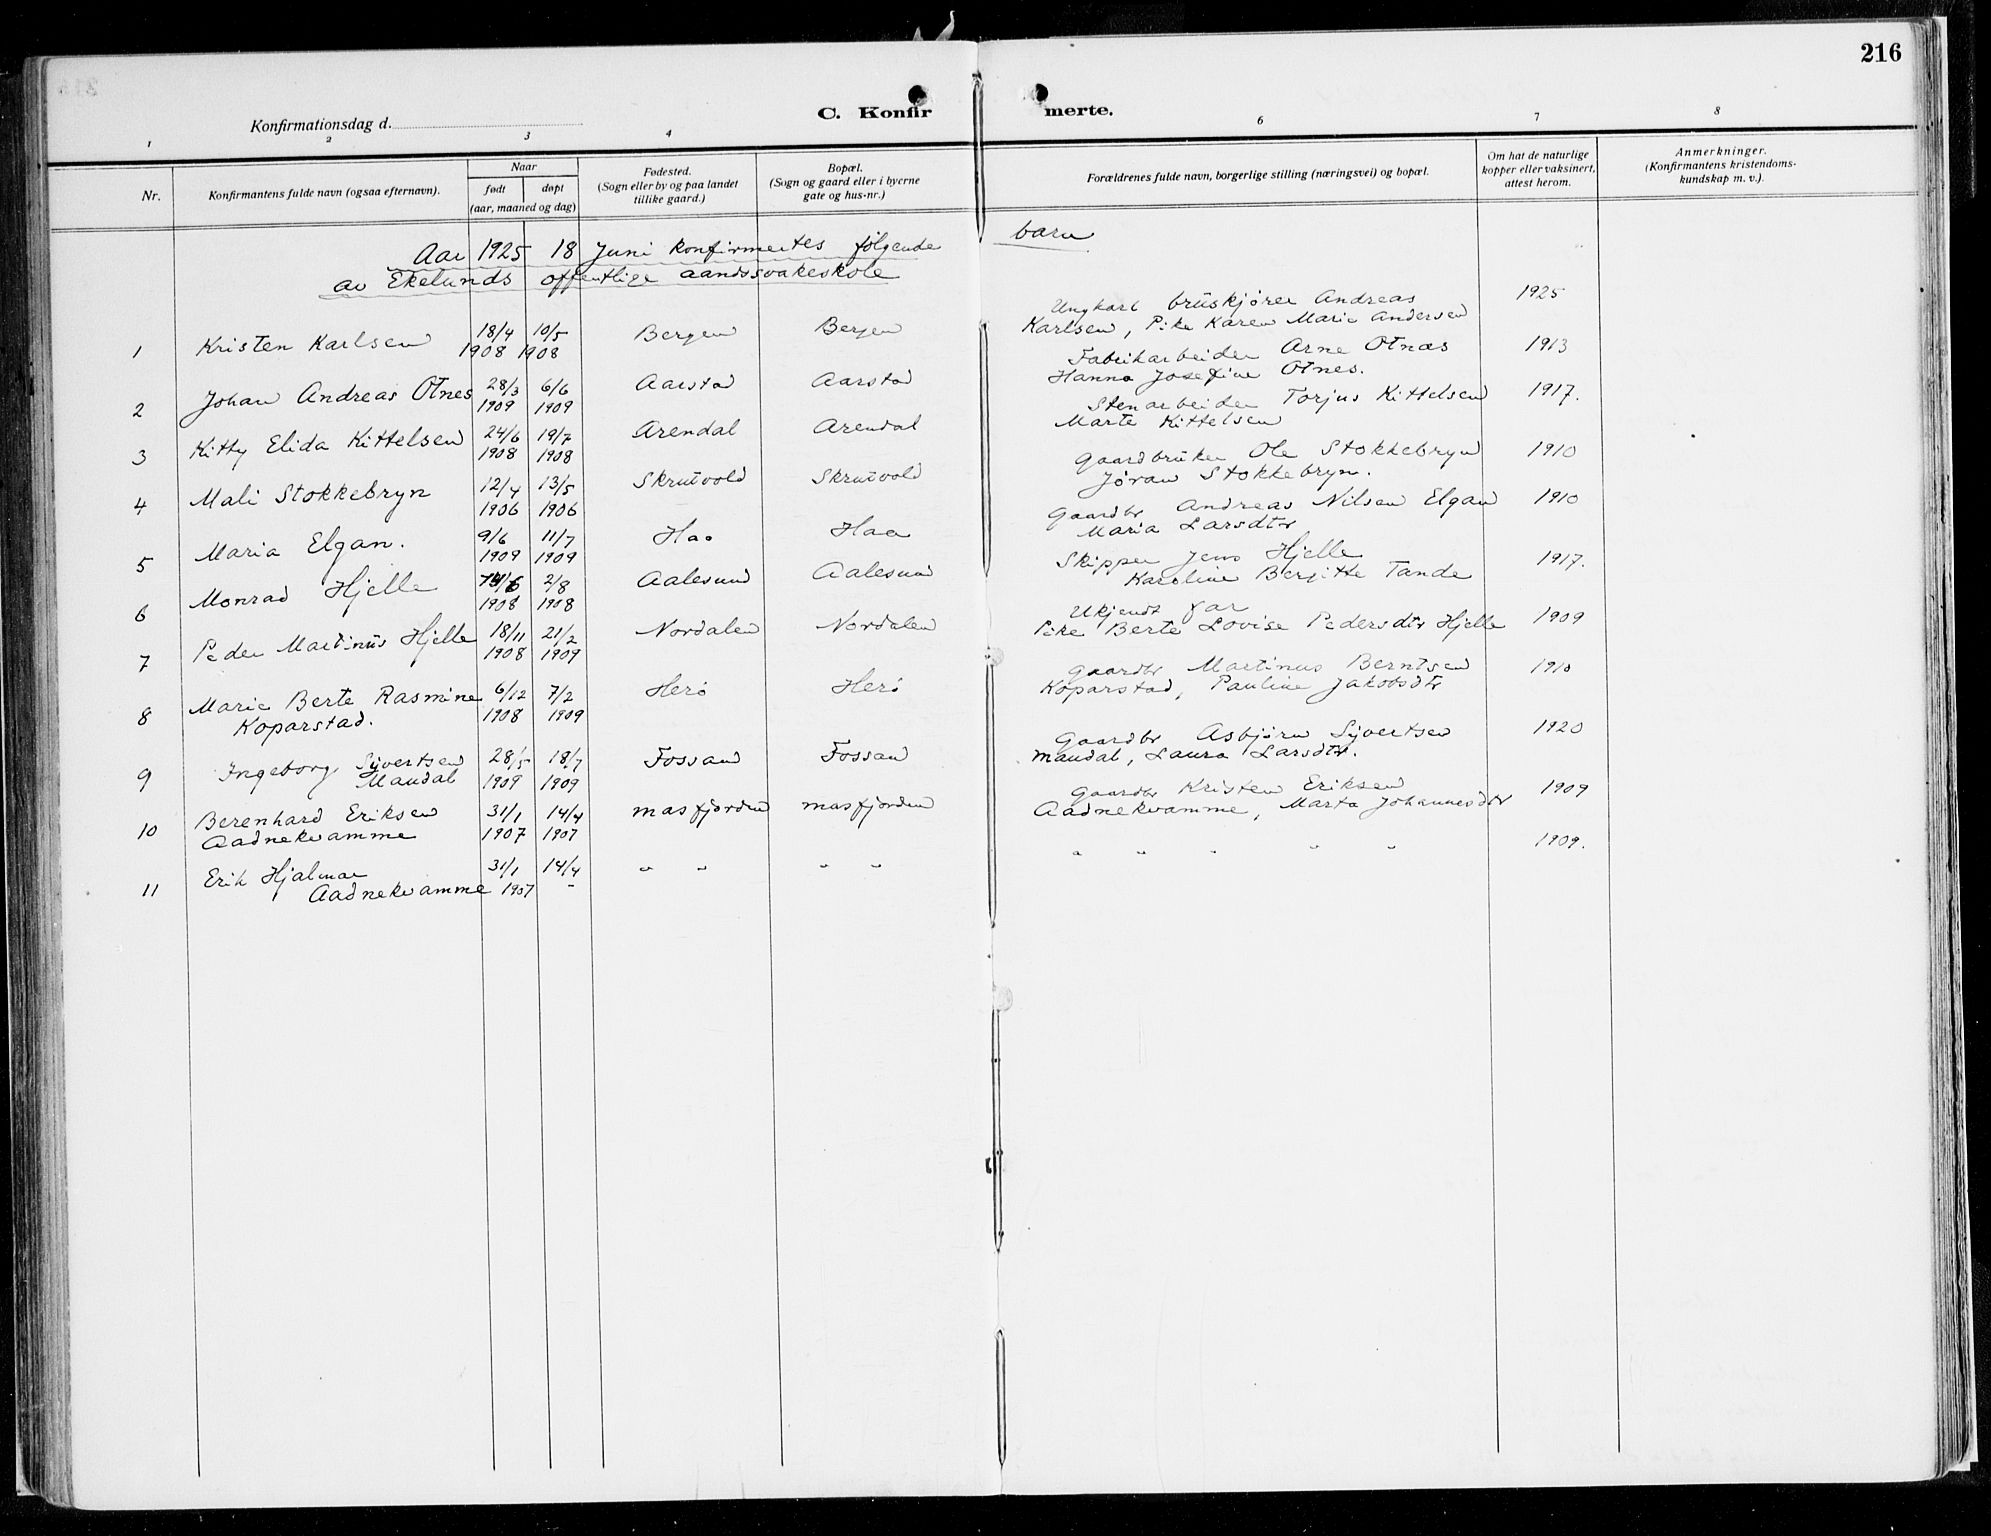 216
C. Konfirmerte.
Konfirmationsdag d.
1 2 3 4 6 7 8
Nr.
Konfirmantens fulde navn (ogsaa efternavn).
Naar
født døpt
(aar, maaned og dag)
Fødested.
(Sogn eller by og paa landet
tillike gaard.)
Bopæl.
(Sogn og gaard eller i byerne
gate og hus-nr.)
Forældrenes fulde navn, borgerlige stilling (næringsvei) og bopæl.
Om hat de naturlige
kopper eller vaksinert,
attest herom.
Anmerkninger.
(Konfirmantens kristendoms-
kundskap m. v.).
Aar 1925 18 Juni konfirmertes følgende barn
av Ekelunds offentlige aandssvakeskole
1 Kristen Karlsen 18/4 1908 10/5 1908 Bergen Bergen Ungkarl bruskjører Andreas 1925
Karlsen, Pike Karen Marie Andersen
2 Johan Andreas Otnes 28/3 1909 6/6 1909 Aarstad Aarstad Fabrikarbeider Arne Otnæs 1913
Hanna Josefine Otnes.
3 Kitty Elida Kittelsen 24/6 1908 19/7 1908 Arendal Arendal Stenarbeider Torjus Kittelsen 1917.
Marte Kittelsen
4 Mali Stokkebryn 12/4 1906 13/5 1906 Skrutvold Skrutvold Gaardbruker Ole Stokkebryn 1910
Jøran Stokkebryn.
5 Maria Elgan. 9/6 1909 11/7 1909 Haa Haa Gaardbr Andreas Nilsen Elgan 1910
Maria Larsdtr
6 Monrad Hjelle 1908 2/8 1908 Aalesund Aalesund Skipper Jens Hjelle 1917.
Karoline Bergitte Tande
7 Peder Martinus Hjelle 18/11 1908 21/2 1909 Nordalen Nordalen Ukjendt far 1909
Pike Berte Lovise Pedersdtr Hjelle
8 Marie Berte Rasmine 6/12 1908 7/2 1909 Herø Herø Gaardbr Martinus Berntsen 1910
Koparstad. Koparstad, Pauline Jakobsdtr
9 Ingeborg Sivertsen 28/5 1909 18/7 1909 Fossan Fossan Gaardbr Asbjørn Sivertsen 1920
Maudal Maudal, Laura Larsdtr.
10 Berenhard Eriksen 31/1 1907 14/4 1907 Masfjorden Masfjorden Gaardbr Kristen Eriksen 1909
Aadnekvamme Aadnekvamme, Marta Johannesdtr
11 Erik Hjalmar 31/1 1907 14/4 - " " " " " " " " " 1909.
Aadnekvamme